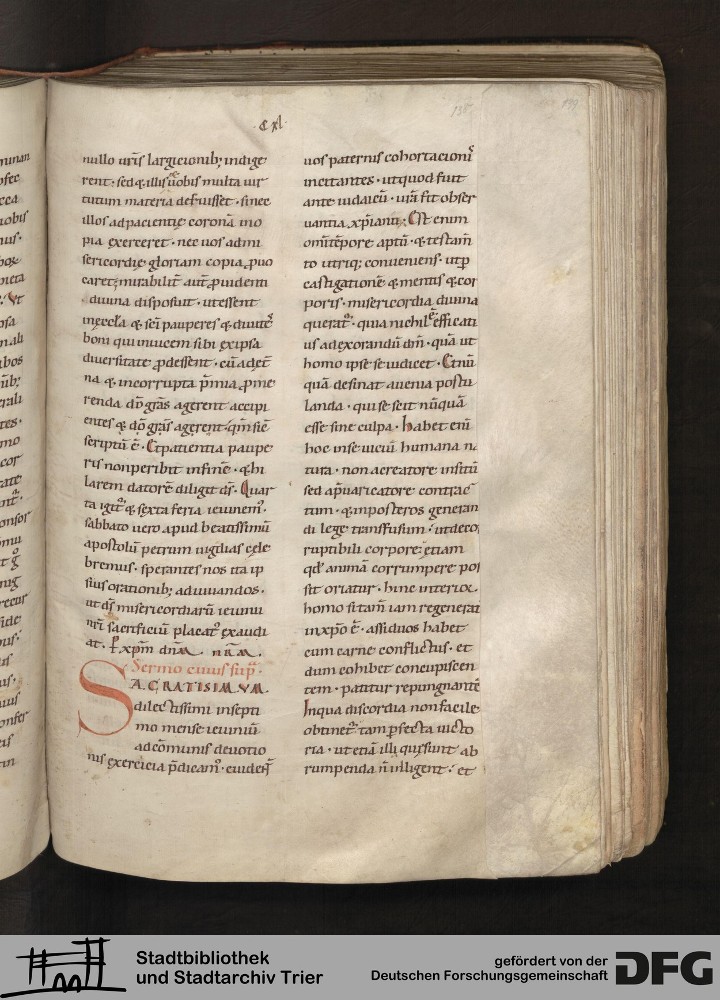 cxl
nullo ur̄is largicionib; indige
rent · sed & illis & uobis multa uir
tutum materia defuisset · si nec
illos ad pacientię coronā ino
pia exerceret · nec uos ad mi
sericordię gloriam copia ꝓuo
caret; mirabilit̄ aut̄ ꝓuidentia
diuina disposuit · ut essent
in ęccl̄a & sc̄i pauperes & diuites
boni qui inuicem sibi ex ipsa
diuersitate ꝓdessent · cū ad ęt̄
na & incorrupta p̄mia ꝓme
renda dō grās agerent accipi
entes & dō grās agerent · qm̄ sic
scriptū ē · Et patientia paupe
ris non peribit in finē · & hi
larem datorē diligit ds̄ · Quar
ta igit̄ & sexta feria ieiunem̄ ·
sabbato uero apud beatissimū
apostolū petrum uigilias cele
bremus · sperantes nos ita ip
sius orationib; adiuuandos ·
ut ds̄ misericordiarū ieiunii
nr̄i sacrificiū placat̄ exaudi
at · P xp̄m dn̄m nr̄m ·
Sermo cuius sup̄ ·
SACRATISIMVM
dilectissimi in septi
mo mense ieiuniū
ad cōmunis deuotio
nis exercicia p̄dicam̄ · euidet̄
uos paternis cohortacioni
incitantes · ut quod fuit
ante iudaicū · ur̄a fit obser
uantia xp̄ianis; Est enim
om̄i tēpore aptū & testam̄
to utriq; conueniens · ut p
castigationē & mentis & cor
poris · misericordia diuina
querat̄ · quia nichil ē efficati
us ad exorandū dm̄ · quā ut
homo ipse se iudicet · Et nū
quā desinat a uenia postu
landa · qui se scit nūquā
esse sine culpa · habet enī
hoc in se uiciū humana na
tura · non a creatore insitū
sed a p̄uaricatore contrac
tum · & in posteros generan
di lege transfusum · ut de co
ruptibili corpore etiam
qd̄ animā corrumpere pos
set oriatur · hinc interior
homo si tam̄ iam regenerat
in xp̄o ē · assiduos habet
cum carne conflictus · et
dum cohibet concupiscen
tem · patitur repungnantē
In qua discordia non facile
obtinet̄ tam p̄fecta uicto
ria · ut etiā illi qui sunt ab
rumpenda n̄ illigent · et
Stadtbibliothek
und Stadtarchiv Trier
gefördert von der
Deutschen Forschungsgemeinschaft
DFG